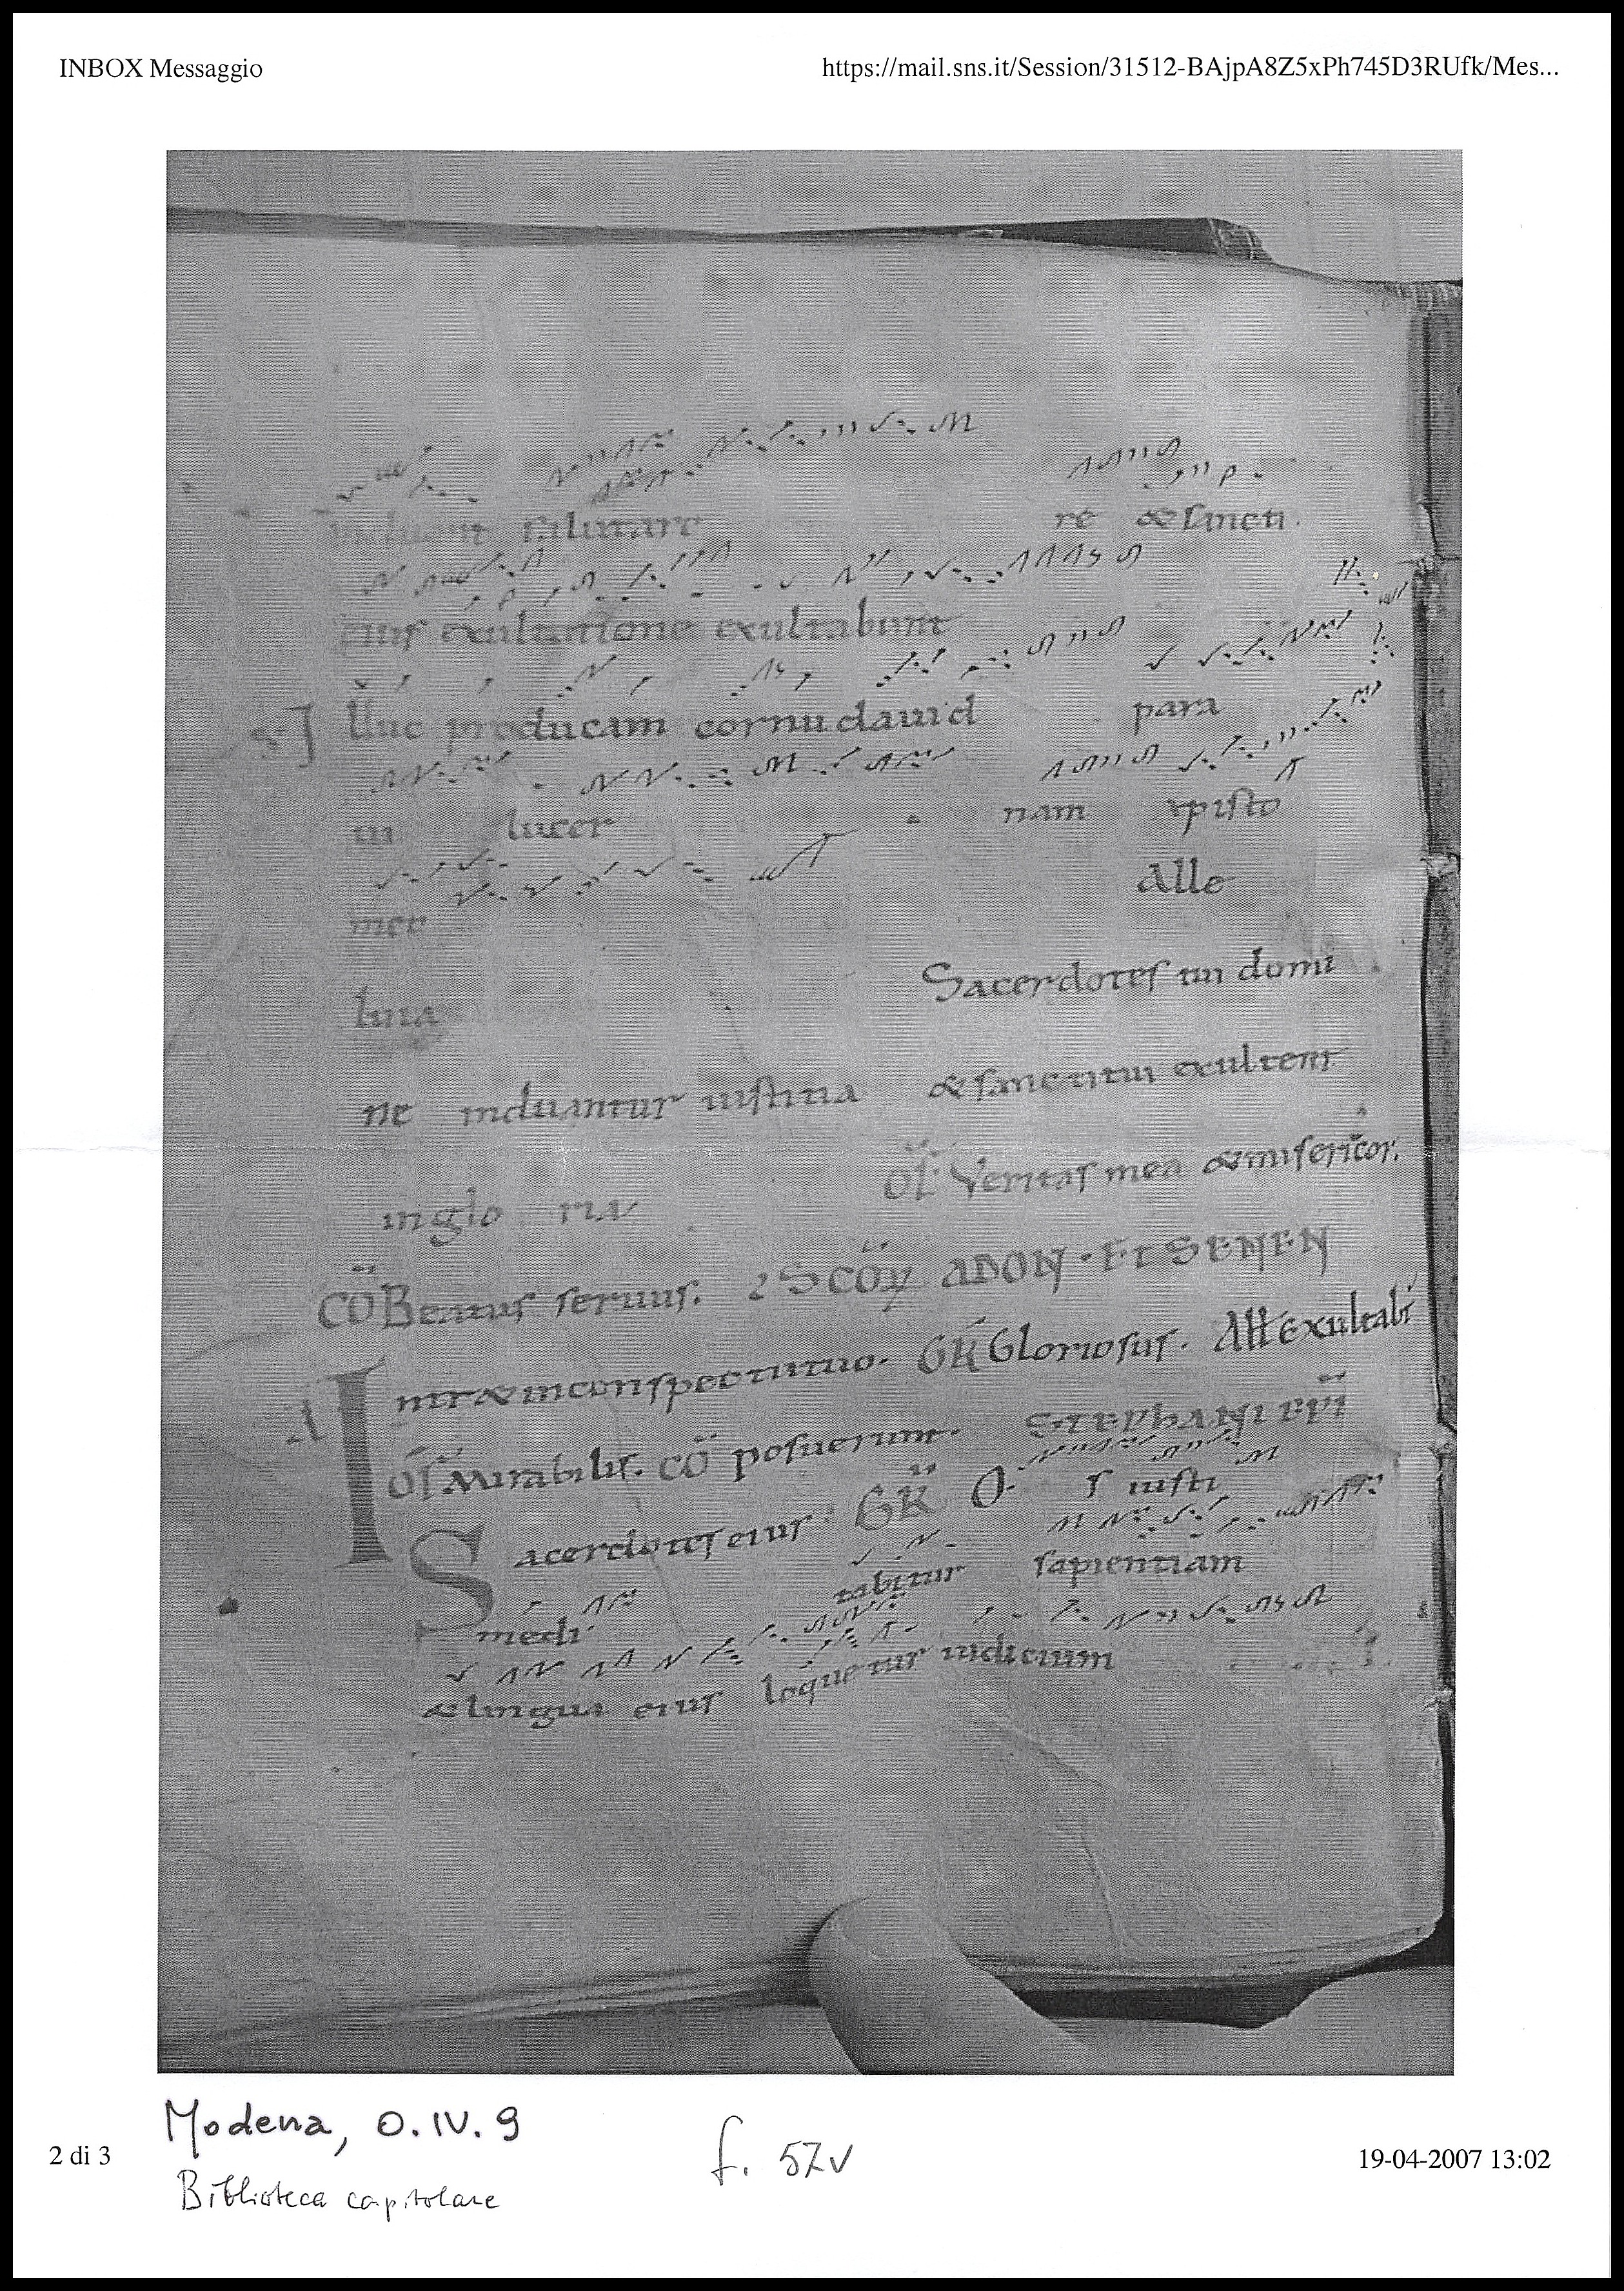 INBOX Messaggio
https://mail.sns.it/Session/31512-BAjpA8Z5xPh745D3RUfk/Mes...
induam salutare re & sancti.
eius exultatione exultabunt
Illuc producam cornu dauid para
ui lucer nam xpisto
meo Alle
luia Sacerdotes tui domi
ne induantur iustitia & sancti tui exultent
in glo ria OF Veritas mea & misericor.
CO Beatus seruus. SCOR ADON · ET SENEN
Intret in conspectu tuo. GR Gloriosus. All Exultabt
OF Mirabilis. CO posuerunt. STEPHANI EPI
Sacerdotes eius. GR Os iusti
medi tabitur sapientiam
& lingua eius loquetur iudicium
Modena, O.IV.9
f. 57v
Biblioteca capitolare
2 di 3
19-04-2007 13:02